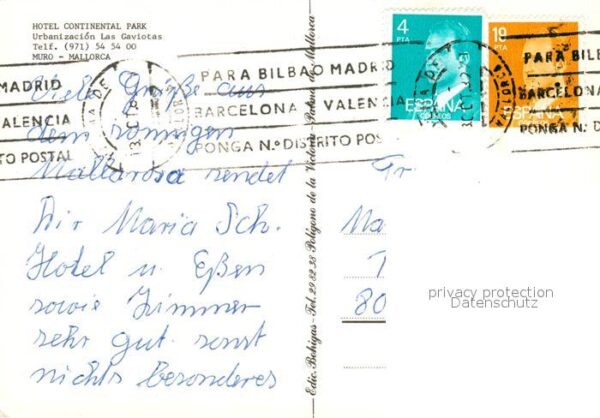 HOTEL CONTINENTAL PARK
Urbanización Las Gaviotas
Telf. (971) 54 54 00
MURO - MALLORCA
4
PTA
ESPAÑA
CORREOS
19
PTA
ESPAÑA
PARA BILBAO MADRID
BARCELONA VALENCIA
PONGA N.º DISTRITO POSTAL
MADRID
VALENCIA
DISTRITO POSTAL
PARA BILBAO
BARCELONA
PONGA N.º D
Viele Grüße aus
dem sonnigen
Mallorca sendet
Dir Maria Sch.
Hotel u. Eßen
sowie Zimmer
sehr gut sonst
nichts besonderes
Edic. Bohigas - Tel. 29 82 38 Polígono de la Victoria - Palma de Mallorca
Fr.
Ma
T
80
privacy protection
Datenschutz